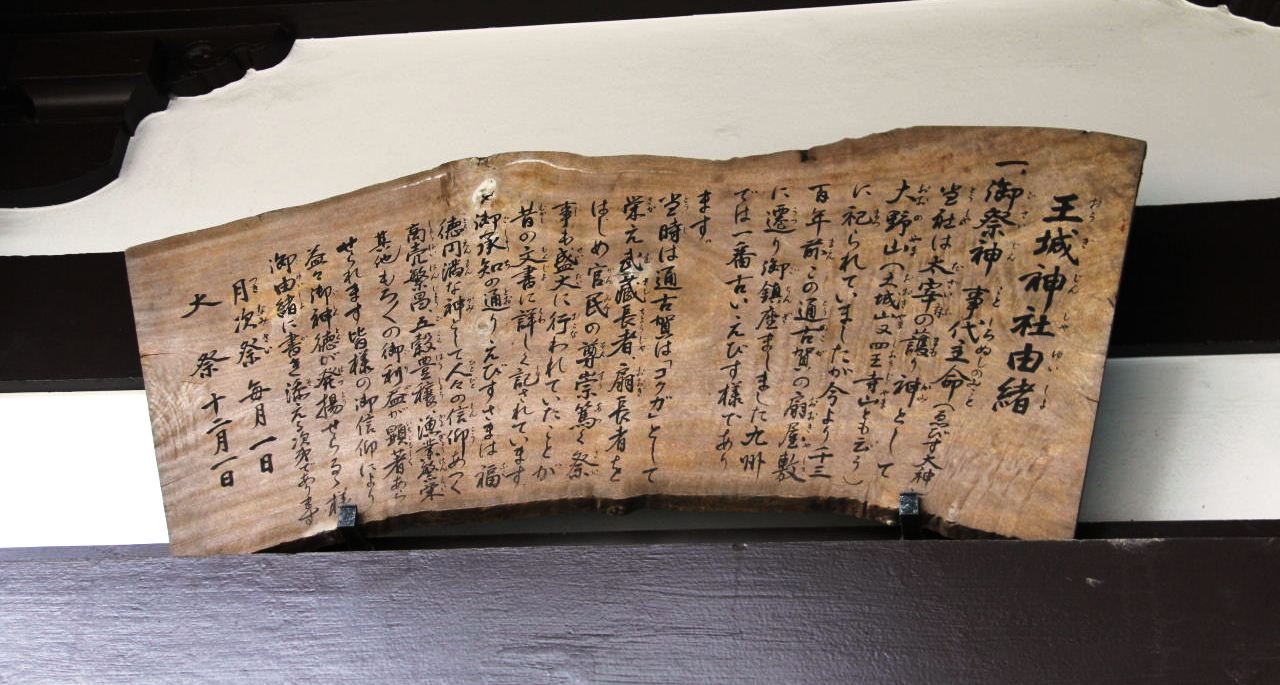 王城神社由緒
一、御祭神 事代主命（ゑびす大神
当社は太宰の護り神として
大野山（王城山又四王寺山とも云う）
に祀られていましたが今より千三
百年前この通古賀の扇屋敷
に遷り御鎮座ましました九州
では一番古いえびす様であり
ます。
当時は通古賀は「コクガ」として
栄え武蔵長者扇長者を
はじめ官民の尊崇篤く祭
事も盛大に行われていたことが
昔の文書に詳しく記されています
御承知の通りえびすさまは福
徳円満な神として人々の信仰あつく
商売繁昌五穀豊穣、漁業繁栄
其他もろくの御利益が顕著あら
せられます皆様の御信仰により
益々御神徳が発揚せらるる様
御由緒に書き添える次第であります
月次祭 毎月一日
大祭 十二月一日